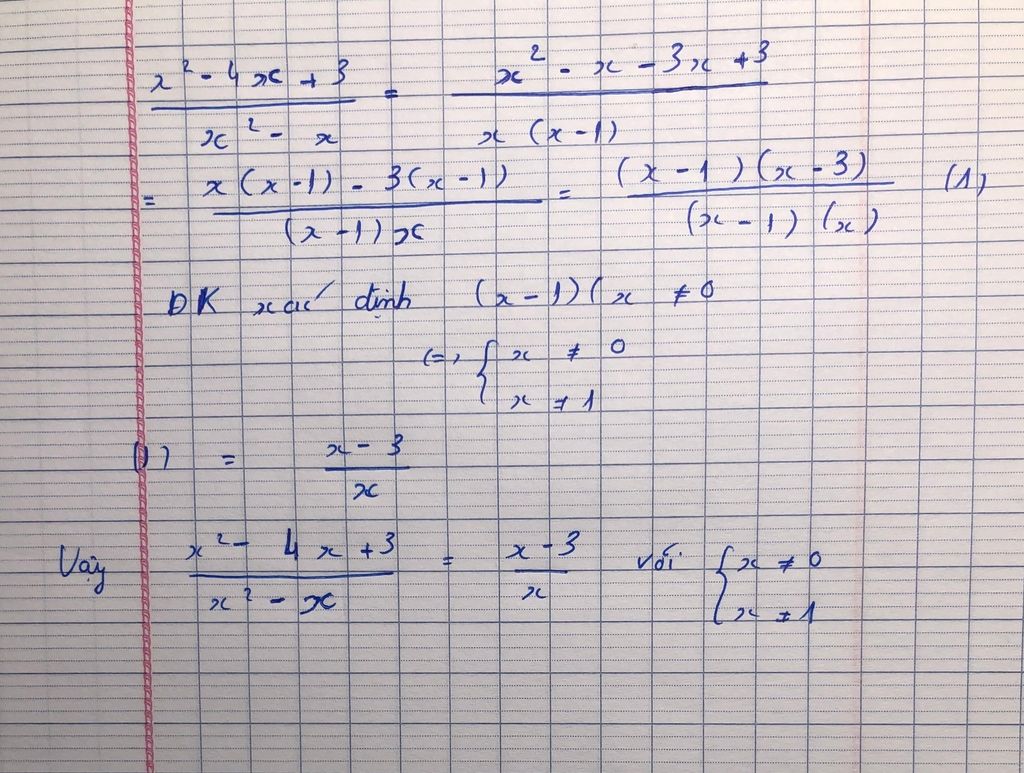 (x² - 4x + 3)/(x² - x) = (x² - x - 3x + 3)/(x (x - 1))
= (x (x - 1) - 3(x - 1))/((x - 1) x) = ((x - 1) (x - 3))/((x - 1) (x)) (1)
ĐK xác định (x - 1)( x ≠ 0
(=) { x ≠ 0
x ≠ 1
(1) = (x - 3)/x
Vậy (x² - 4x + 3)/(x² - x) = (x - 3)/x với { x ≠ 0
x ≠ 1